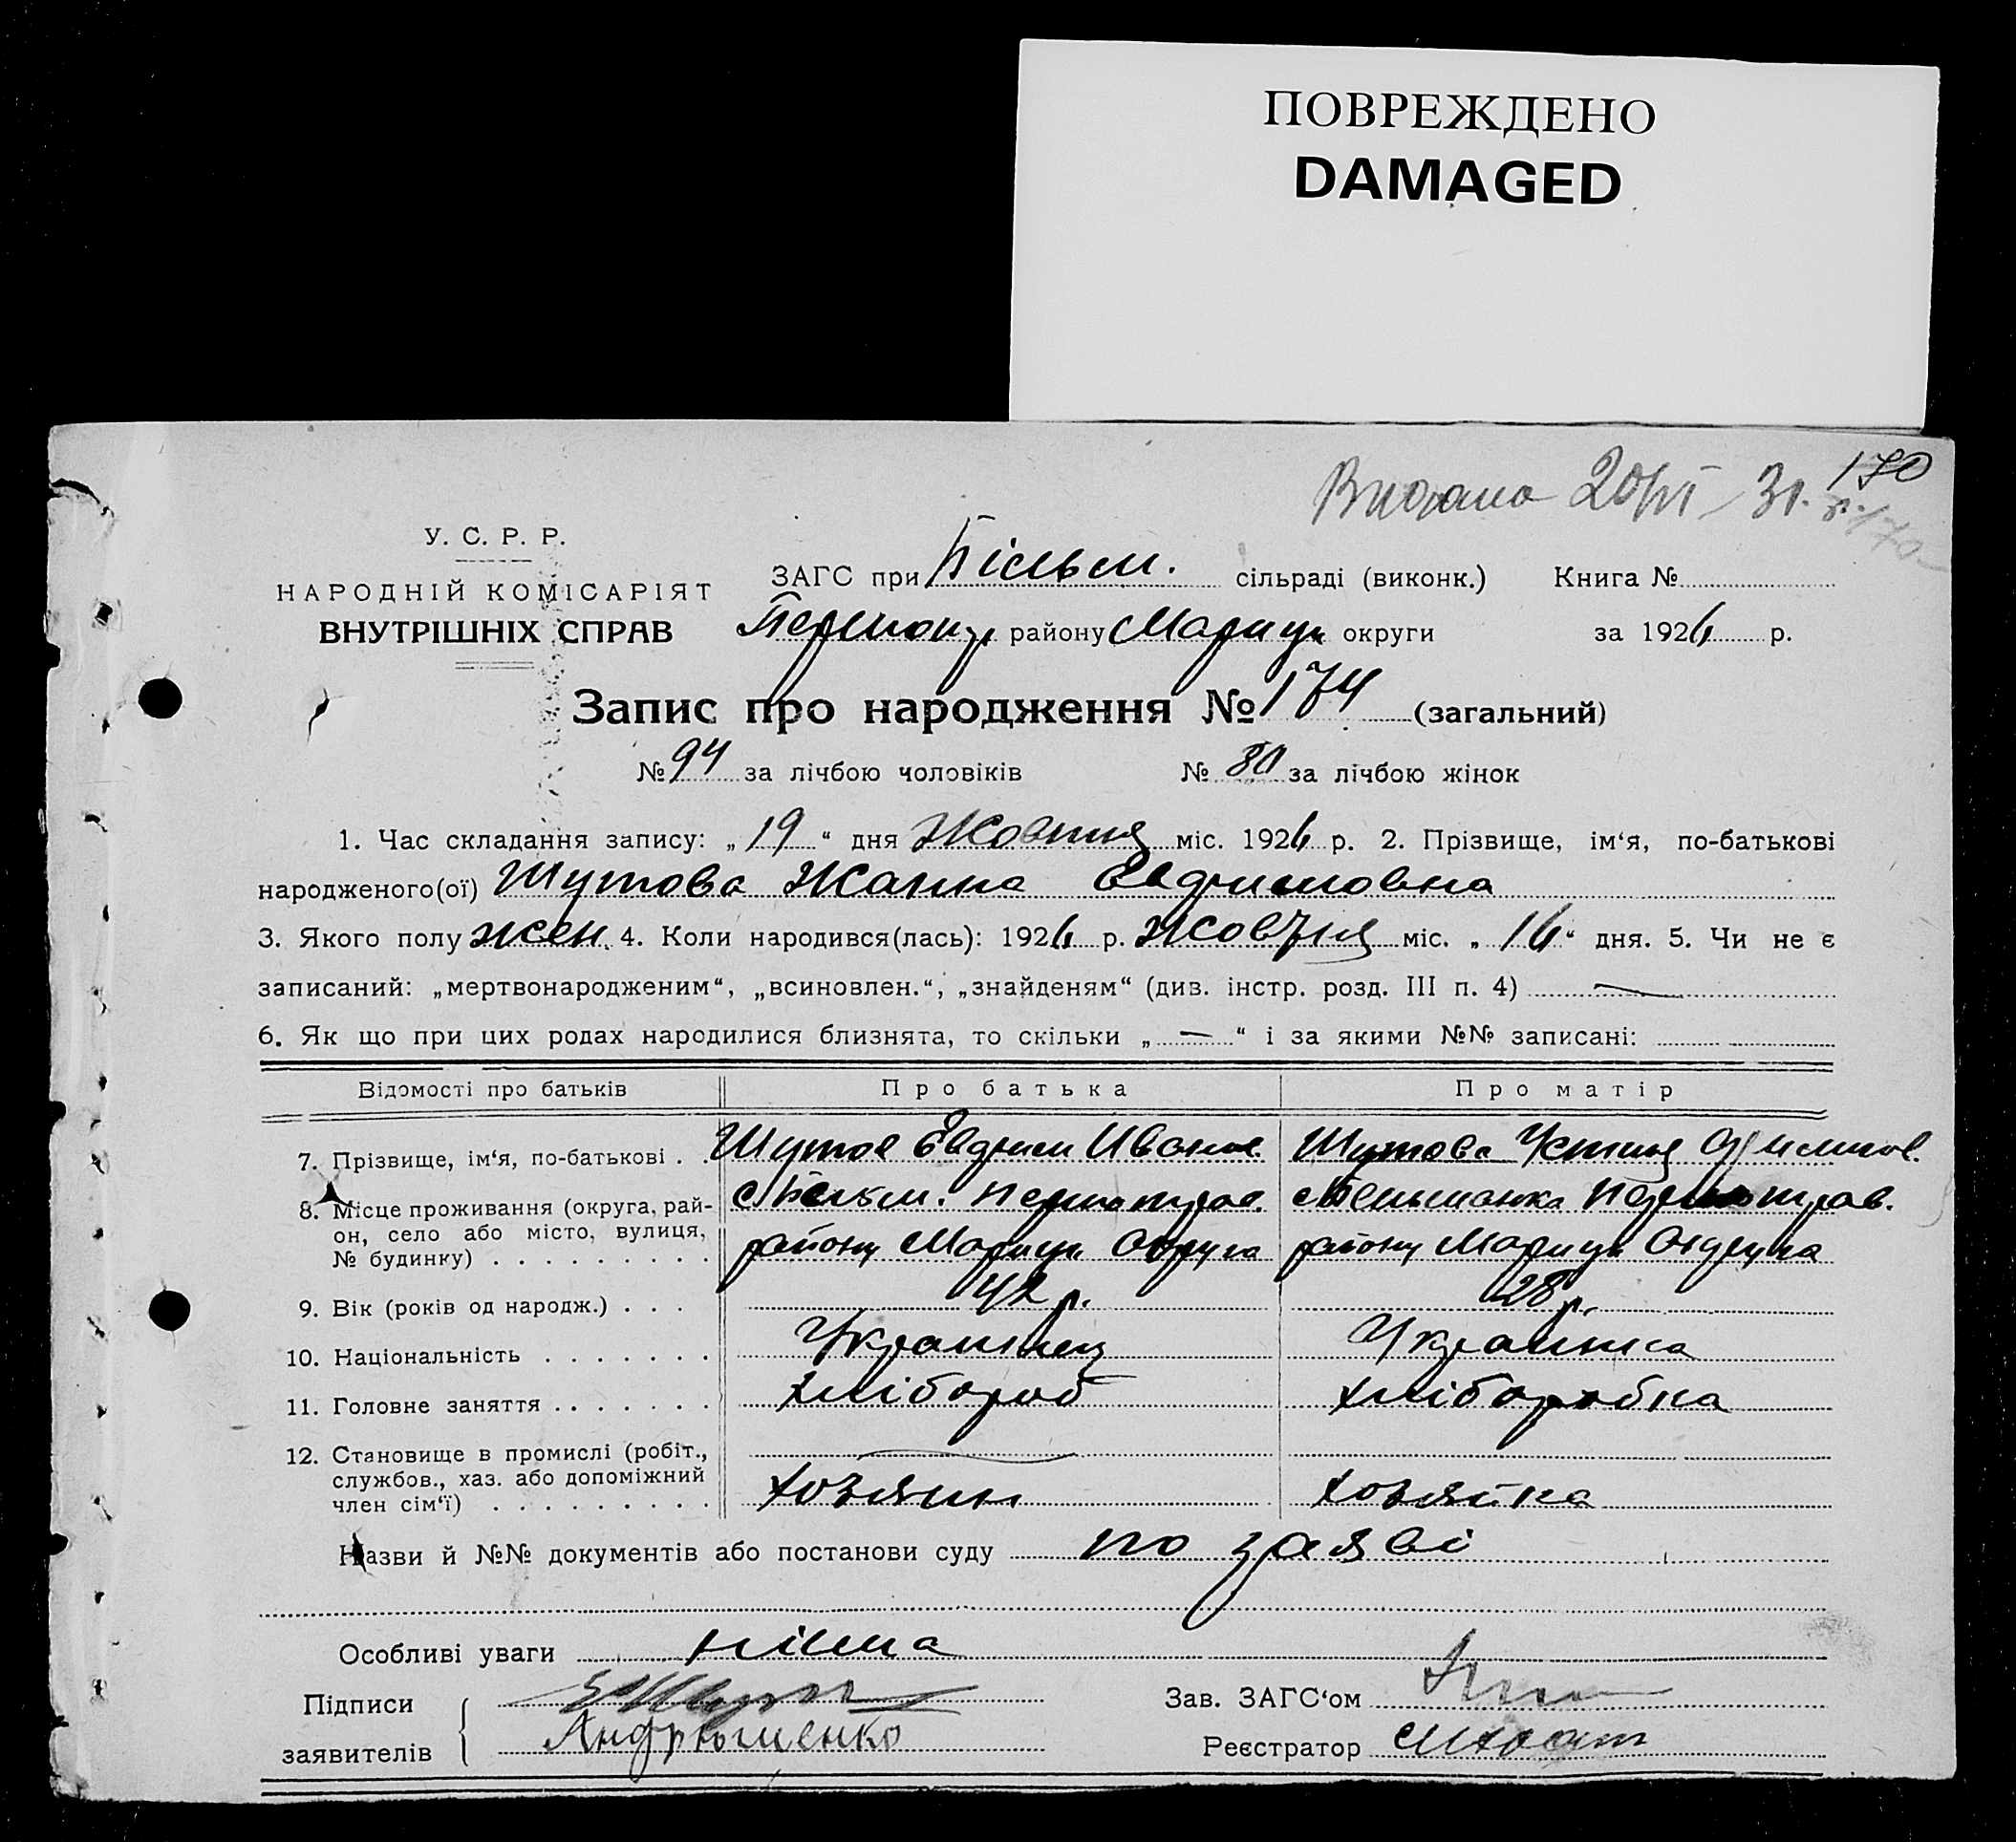 ПОВРЕЖДЕНО
DAMAGED
170
20/VI 31.
У. С. Р. Р.
НАРОДНІЙ КОМІСАРІЯТ
ВНУТРІШНІХ СПРАВ
ЗАГС при Більм. сільраді (виконк.) Книга №
району Мариуп округи за 1926 р.
Запис про народження № 174 (загальний)
№ 94 за лічбою чоловіків № 80 за лічбою жінок
1. Час складання запису: „ 19 “ дня Жовтня міс. 1926 р. 2. Прізвище, ім‘я, по-батькові
народженого(ої) Шутова Жанна
3. Якого полу жен. 4. Коли народився(лась): 1926 р. Жовтня міс. „ 16 “ дня. 5. Чи не є
записаний: „мертвонародженим“, „всиновлен.“, „знайденям“ (див. інстр. розд. III п. 4) —
6. Як що при цих родах народилися близнята, то скільки „ — “ і за якими №№ записані:
Відомості про батьків Про батька Про матір
7. Прізвище, ім‘я, по-батькові . . Шутов Иванов. Шутова Устиня
8. Місце проживання (округа, рай-
он, село або місто, вулиця,
№ будинку) . . . . . . . . .
с Більм. Першотрав. Першотрав.
району Мариуп Округа району Мариуп Округа
9. Вік (років од народж.) . . . 42 р. 28 р.
10. Національність . . . . . . . Українец Українка
11. Головне заняття . . . . . . . хлібороб хліборобка
12. Становище в промислі (робіт.,
службов., хаз. або допоміжний
член сім‘ї) . . . . . . . . .
хозяин хозяйка
Назви й №№ документів або постанови суду по заяві
Особливі уваги німа
Підписи
заявителів
Андрющенко
Зав. ЗАГС‘ом
Реєстратор